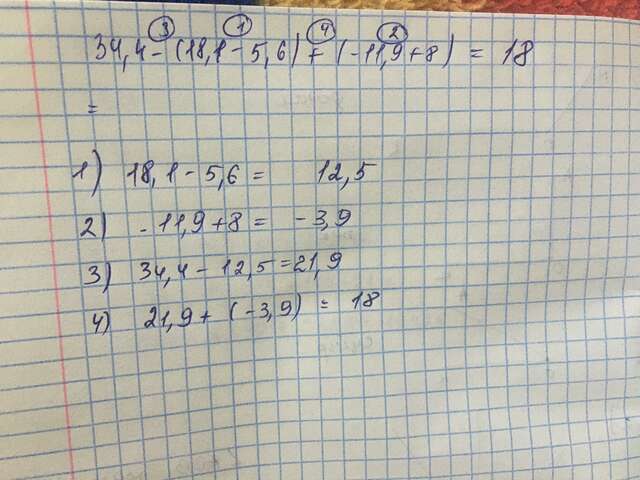 3 1 4 2
34,4 - (18,1 - 5,6) + (-11,9 + 8) = 18
=
1) 18,1 - 5,6 = 12,5
2) -11,9 + 8 = -3,9
3) 34,4 - 12,5 = 21,9
4) 21,9 + (-3,9) = 18